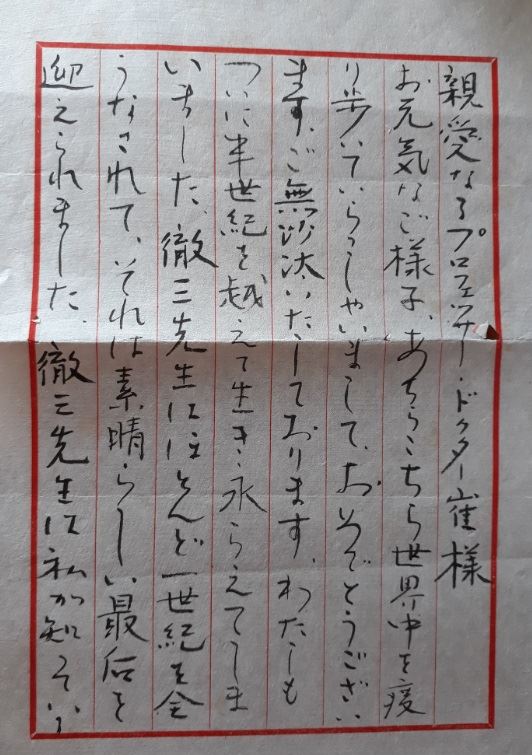 親愛なるプロフェッサー・ドクター崔様
お元気なご様子、あちらこちら世界中を
り歩いていらっしゃいまして、おめでとうござい
ます、ご無沙汰いたしております、わたしも
ついに半世紀を越えて生き永らえてしま
いました、徹三先生にほとんど一世紀を全
うなされて、それは素晴らしい最后を
迎えられました、徹三先生は私が知っている